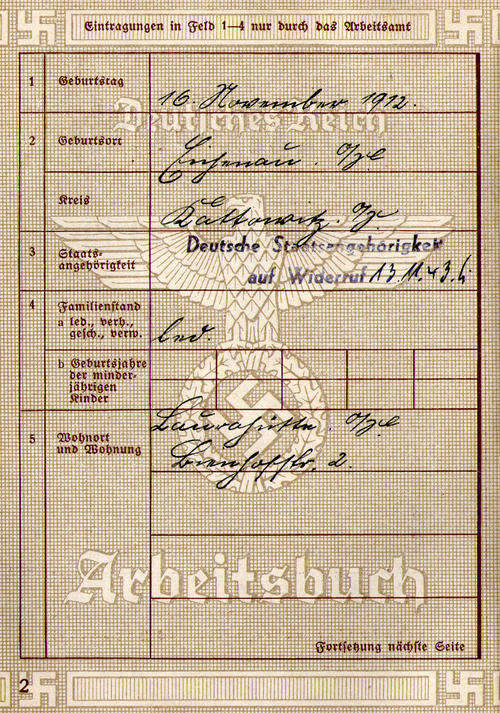 Eintragungen in Feld 1–4 nur durch das Arbeitsamt
Deutsches Reich
1 Geburtstag 16. November 1912.
2 Geburtsort Eichenau. O/S
Kreis Kattowitz. O/S
3 Staats-
angehörigkeit
Deutsche Staatsangehörigkeit
auf Widerruf 13.11.43.
4 Familienstand
a led., verh.,
gesch., verw.
led.
b Geburtsjahre
der minder-
jährigen
Kinder
5 Wohnort
und Wohnung
Laurahütte. O/S
2.
Arbeitsbuch
Fortsetzung nächste Seite
2